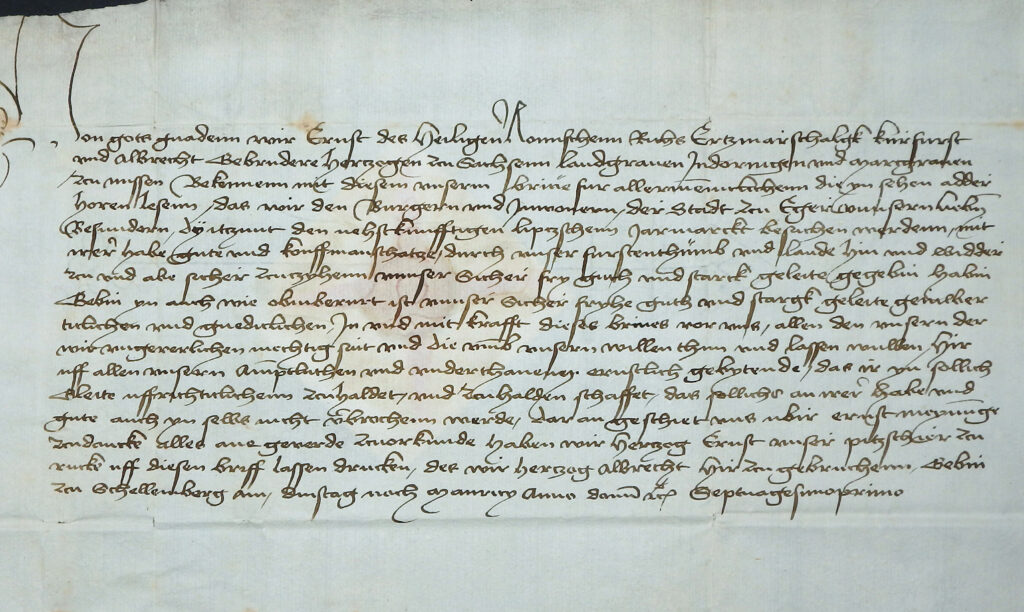 Von gots gnadenn wir Ernst des Heiligen Romischenn Richs Ertzmarschalgk kurfurst
vnd Albrecht Gebrudere Hertzogen zcu Sachsenn landgrauen In doringen vnd Marggrauen
zcu missen Bekennenn mit diesem vnserm briue fur allermeniclichenn die yn sehen adder
horen lesenn, das wir den Burgern vnd Inwonern, der Stadt zcu Eger vnnsern liebin
Besundern, dy itzunt den nehstkunfftigen liptzschenn Jarmarckt besuchen werdenn, mit
irer habe, gute vnd kouffmanschatze, durch vnser furstenthumb vnd lande hin vnd widder
zcu vnd abe sicher zcuczyhenn vnnser Sicher fry gutt vnd starck geleite gegebin habin
Gebin yn auch wie obinberurt ist vnnser Sicher fryhe gutt vnd stargk geleite
tiklichen vnd gnediclichen, In vnd mit krafft dieses briues vor vns, allen den vnsern der
wir vngeuerlichen mechtig seit vnd die vmb vnsern willen thun vnd lassen wullen Hir
uff allen vnsern Amptluthen vnd vnderthanenn ernstlich gebytende, das ir yn sollich
Gleite uffrichtiklichenn zcuhaldet, vnd zcuhalden schaffet, das sollichs an irer habe vnd
gute auch yn selbs nicht vbrochenn werde, dar an geschiet vns ubir ernst meynunge
zcudancke alles ane geuerde zcuorkunde haben wir Hertzog Ernst vnser pitzschir zcu
rucke uff diesen briff lassen drucken, des wir hertzog Albrecht hir zcu gebruchenn, Gebin
zcu Schellemberg am, dinstag noch Mauricy Anno domi Septuagesimoprimo